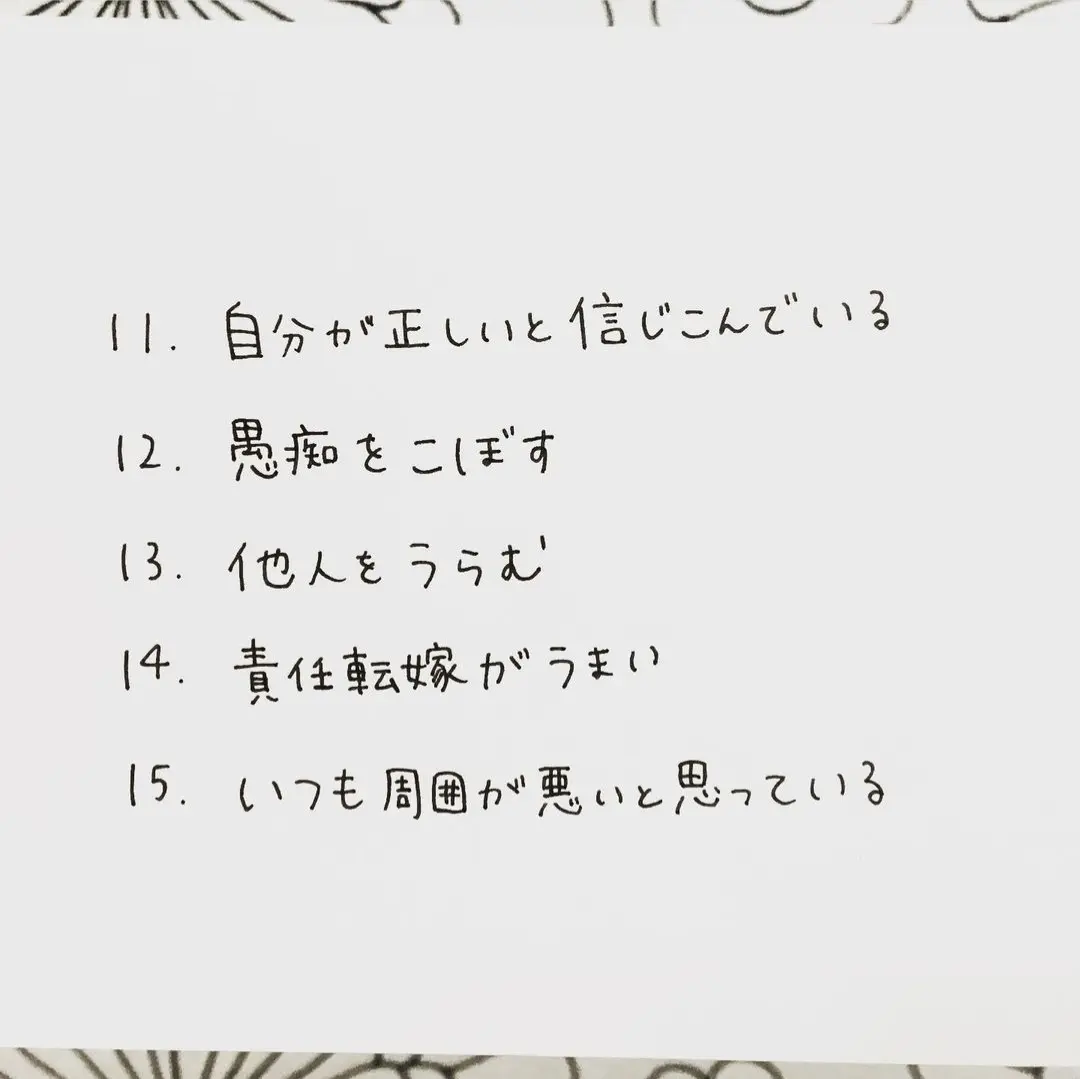 11. 自分が正しいと信じこんでいる
12. 愚痴をこぼす
13. 他人をうらむ
14. 責任転嫁がうまい
15. いつも周囲が悪いと思っている